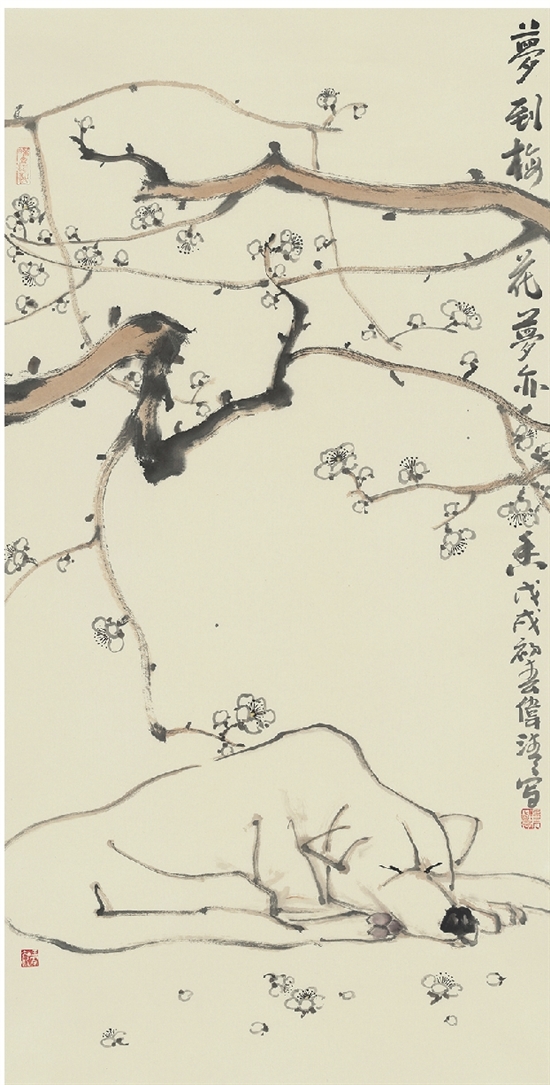 夢到梅花夢亦香戊戌初春偉写